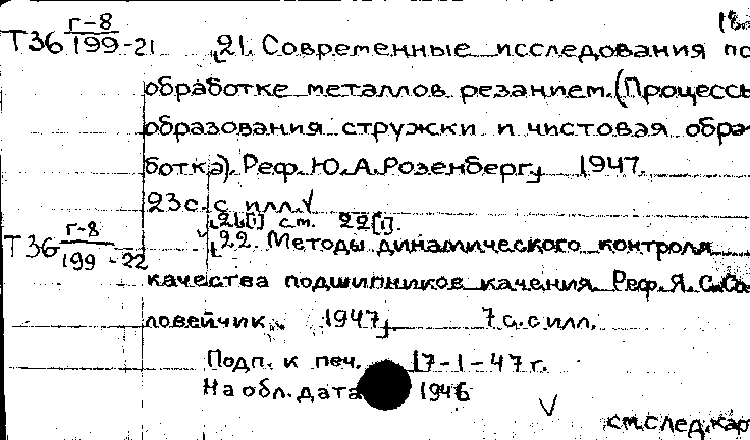 18
Т36 г-8/199-21 21. Современные исследования по
обработке металлов резанием. (Процессы
образования стружки и чистовая обра-
ботка). Реф. Ю.А.Розенберг, 1947.
23с. с илл. V
21[1] см. 22[1].
Т36 г-8/199-22 22. Методы динамического контроля
качества подшипников качения. Реф. Я.С.Со-
ловейчик. 1947, 7с. с илл.
Подп. к печ. 17-1-47г.
На обл. дата 1946
V
см.след.кар